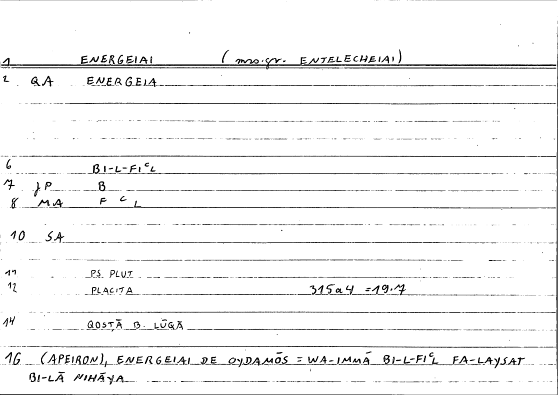 1 ENERGEIAI (mss.gr. ENTELECHEIAI)
2 QA ENERGEIA
6 BI-L-FIᶜL
7 JP B
8 MA F ᶜ L
10 SA
11 PS. PLUT.
12 PLACITA 315a4 = 19.7
14 QOSṬĀ B. LŪQĀ
16 (APEIRON), ENERGEIAI DE OYDAMŌS = WA-IMMĀ BI-L-FIᶜL FA-LAYSAT
BI-LĀ NIHĀYA